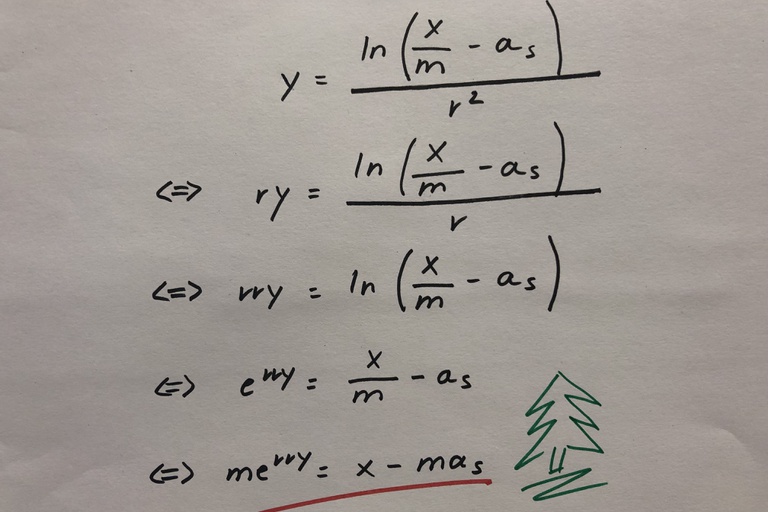 y = ln(x/m - a_s) / r^2
<=> ry = ln(x/m - a_s) / r
<=> rry = ln(x/m - a_s)
<=> e^rry = x/m - a_s
<=> me^rry = x - ma_s